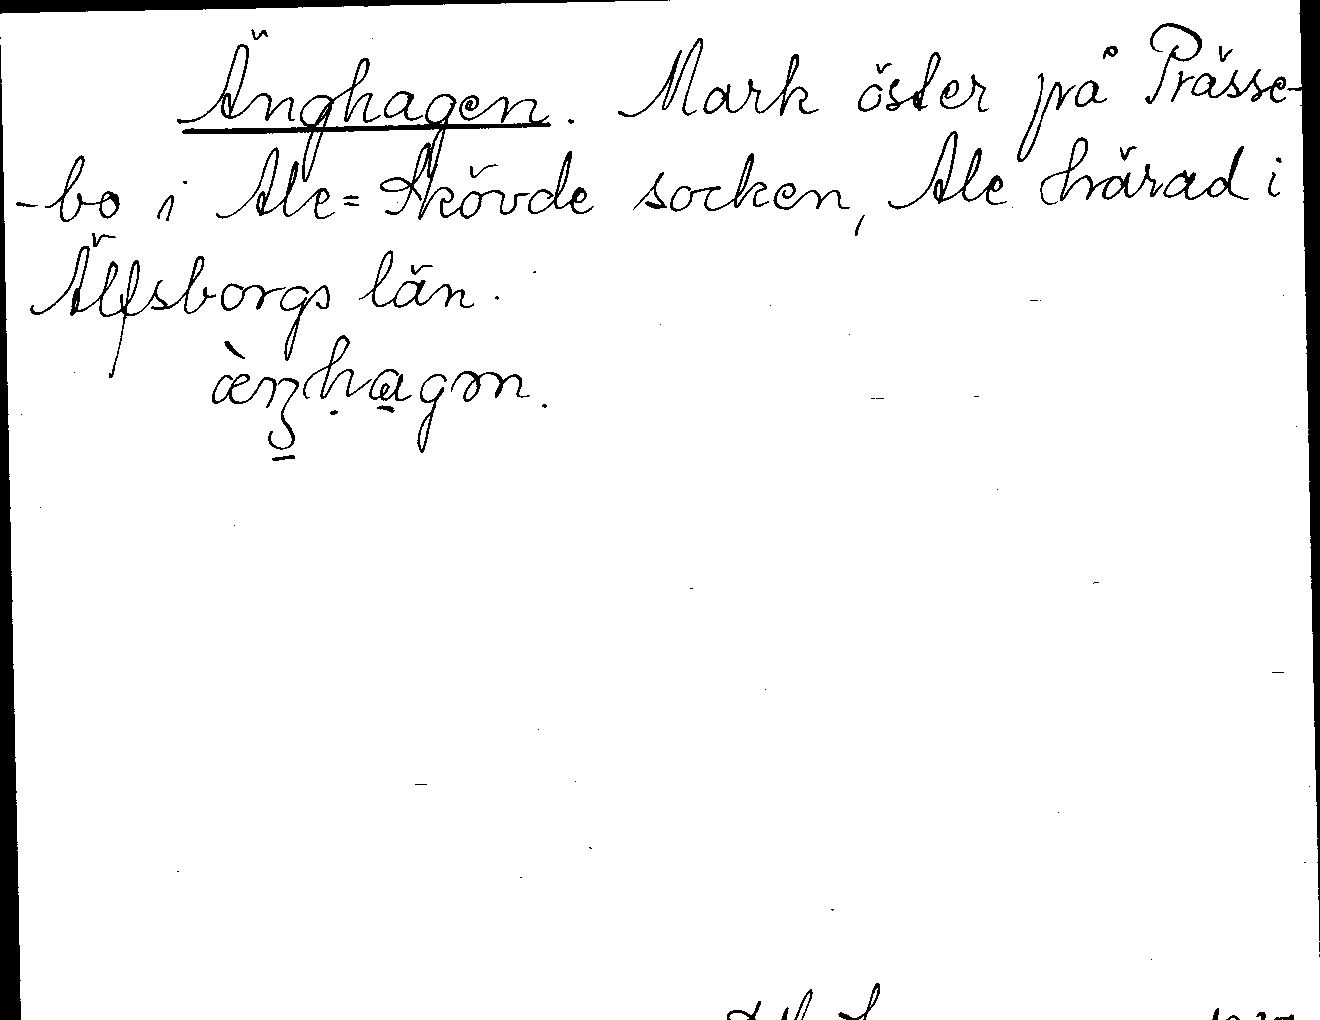 Änghagen. Mark öster på Prässe-
-bo i Ale=Skövde socken, Ale härad i
Älfsborgs län.
æ̀nʒhagən.